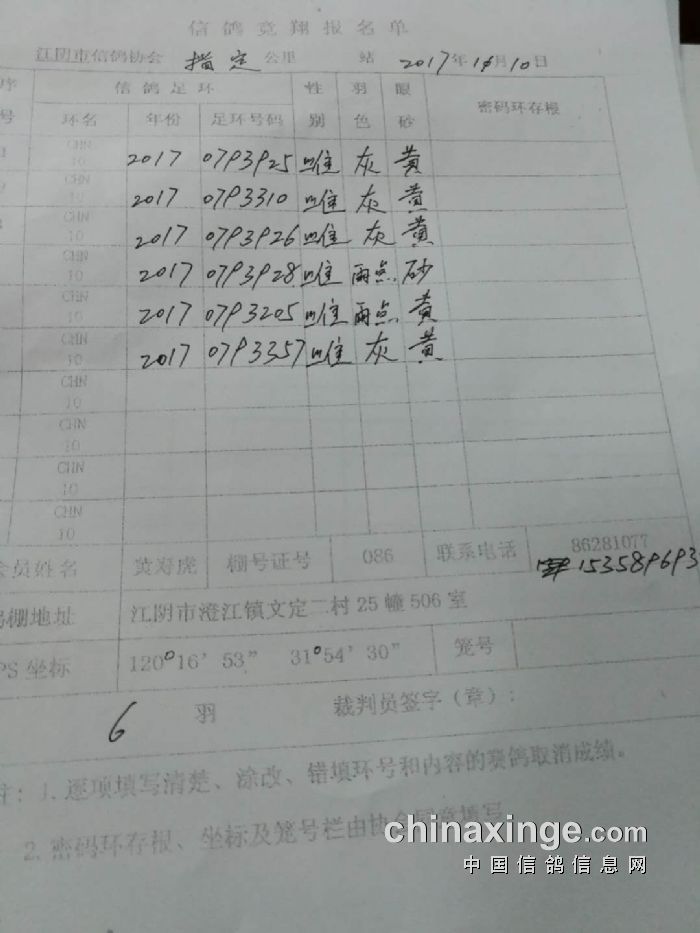 信鸽竞翔报名单
江阴市信鸽协会 指定 公里 站 2017年10月10日
序号 信鸽足环 性别 羽色 眼砂 密码环存根
环名 年份 足环号码
CHN 10 2017 0793925 雌 灰 黄
CHN 10 2017 0793310 雌 灰 黄
CHN 10 2017 0793926 雌 灰 黄
CHN 10 2017 0793928 雌 雨点 砂
CHN 10 2017 0793205 雌 雨点 黄
CHN 10 2017 0793357 雌 灰 黄
CHN 10
CHN 10
CHN 10
CHN 10
会员姓名 黄寿虎 棚号证号 086 联系电话 86281077
153589693
鸽棚地址 江阴市澄江镇文定二村25幢506室
PS 坐标 120°16′53″ 31°54′30″ 笼号
6 羽 裁判员签字(章):
注: 1.逐项填写清楚、涂改、错填环号和内容的赛鸽取消成绩。
2.密码环存根、坐标及笼号栏由协会填写
chinaxinge.com
中国信鸽信息网